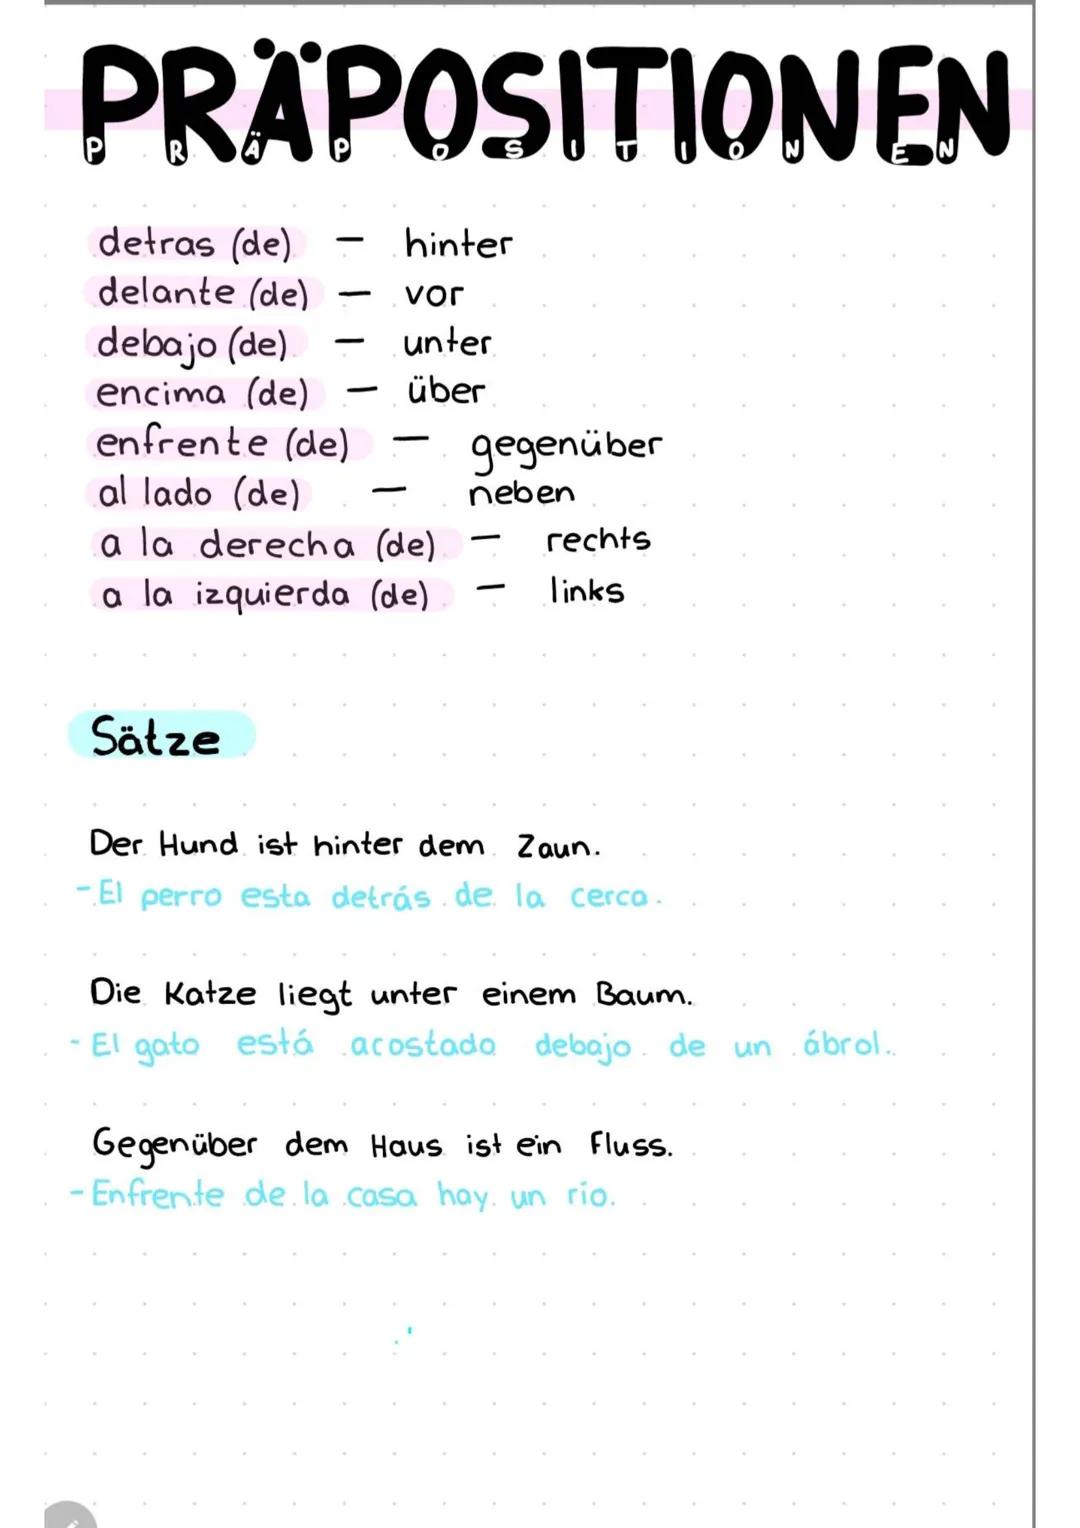 PRÄPOSITIONEN
PRÄPOSITIONEN
detras (de) – hinter
delante (de) – vor
debajo (de) – unter
encima (de) – über
enfrente (de) – gegenüber
al lado (de) – neben
a la derecha (de) – rechts
a la izquierda (de) – links
Sätze
Der Hund ist hinter dem Zaun.
- El perro esta detrás de la cerca.
Die Katze liegt unter einem Baum.
- El gato está acostado debajo de un ábrol.
Gegenüber dem Haus ist ein Fluss.
- Enfrente de la casa hay un río.